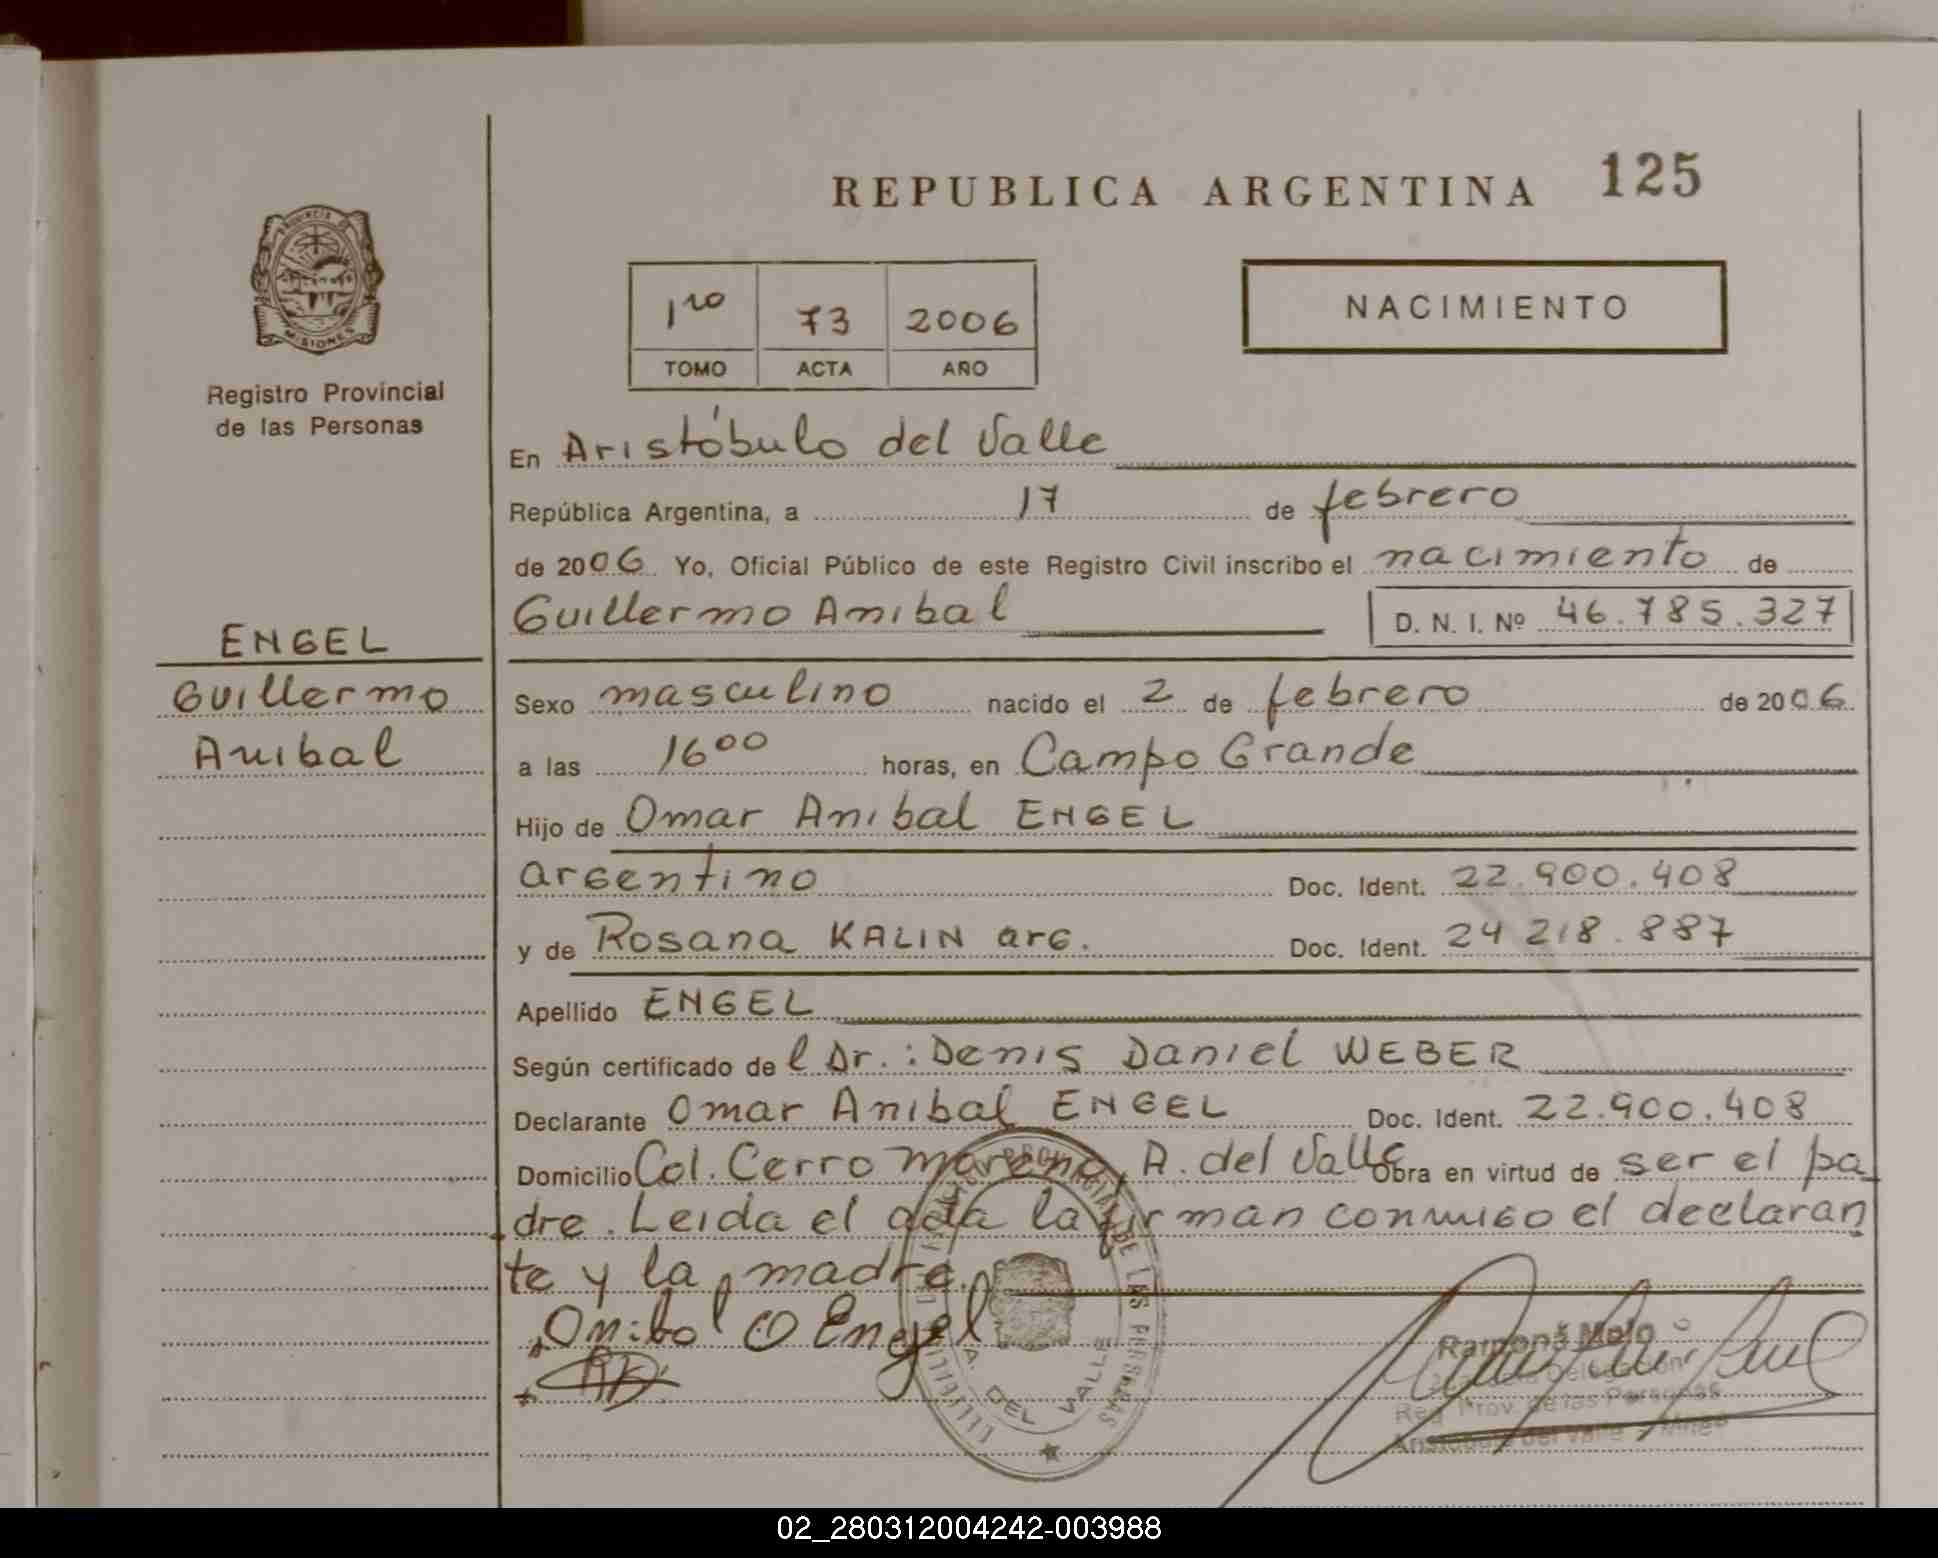 REPUBLICA ARGENTINA 125
PROVINCIA DE
MISIONES
Registro Provincial
de las Personas
1ro 73 2006
TOMO ACTA AÑO
NACIMIENTO
En Aristóbulo del Valle
República Argentina, a 17 de febrero
de 2006 Yo, Oficial Público de este Registro Civil inscribo el nacimiento de
Guillermo Anibal D. N. I. Nº 46.785.327
ENGEL
Guillermo
Anibal
Sexo masculino nacido el 2 de febrero de 2006
a las 16⁰⁰ horas, en Campo Grande
Hijo de Omar Anibal ENGEL
argentino Doc. Ident. 22.900.408
y de Rosana KALIN arg. Doc. Ident. 24 218.887
Apellido ENGEL
Según certificado de l Dr.: Denis Daniel WEBER
Declarante Omar Anibal ENGEL Doc. Ident. 22.900.408
Domicilio Col. Cerro Moreno, A. del Valle Obra en virtud de ser el pa
dre. Leida el acta la firman conmigo el declaran
te y la madre.
Anibal O Engel
DE LAS PERSONAS
A. DEL VALLE
Ramona Melo
Delegación
Reg. Prov. de las Personas
Aristóbulo del Valle - Mnes
02_280312004242-003988